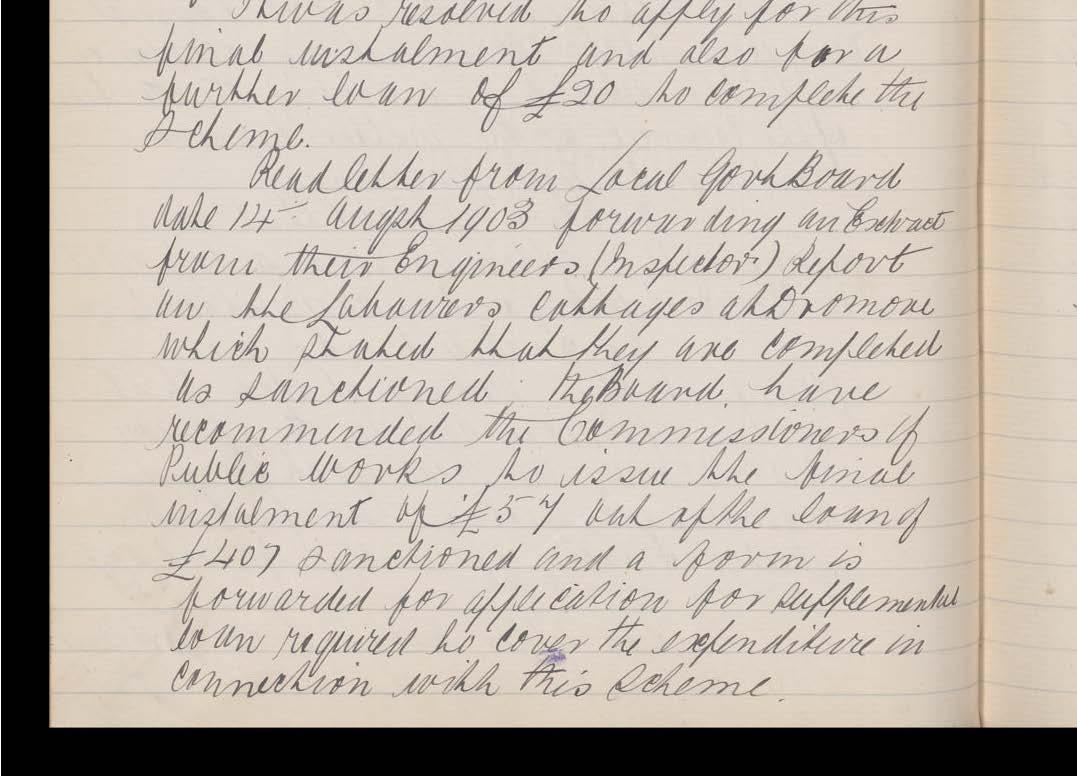 It was resolved to apply for this
final instalment and also for a
further loan of £20 to complete the
Scheme.
Read letter from Local Govt Board
date 14th Augst 1903 forwarding an Extract
from their Engineers (Inspector) Report
on the Labourers cottages at Dromore
which stated that they are completed
as sanctioned. The Board have
recommended the Commissioners of
Public Works to issue the final
instalment of £57 out of the loan of
£407 sanctioned and a form is
forwarded for application for supplemental
loan required to cover the expenditure in
connection with this Scheme.